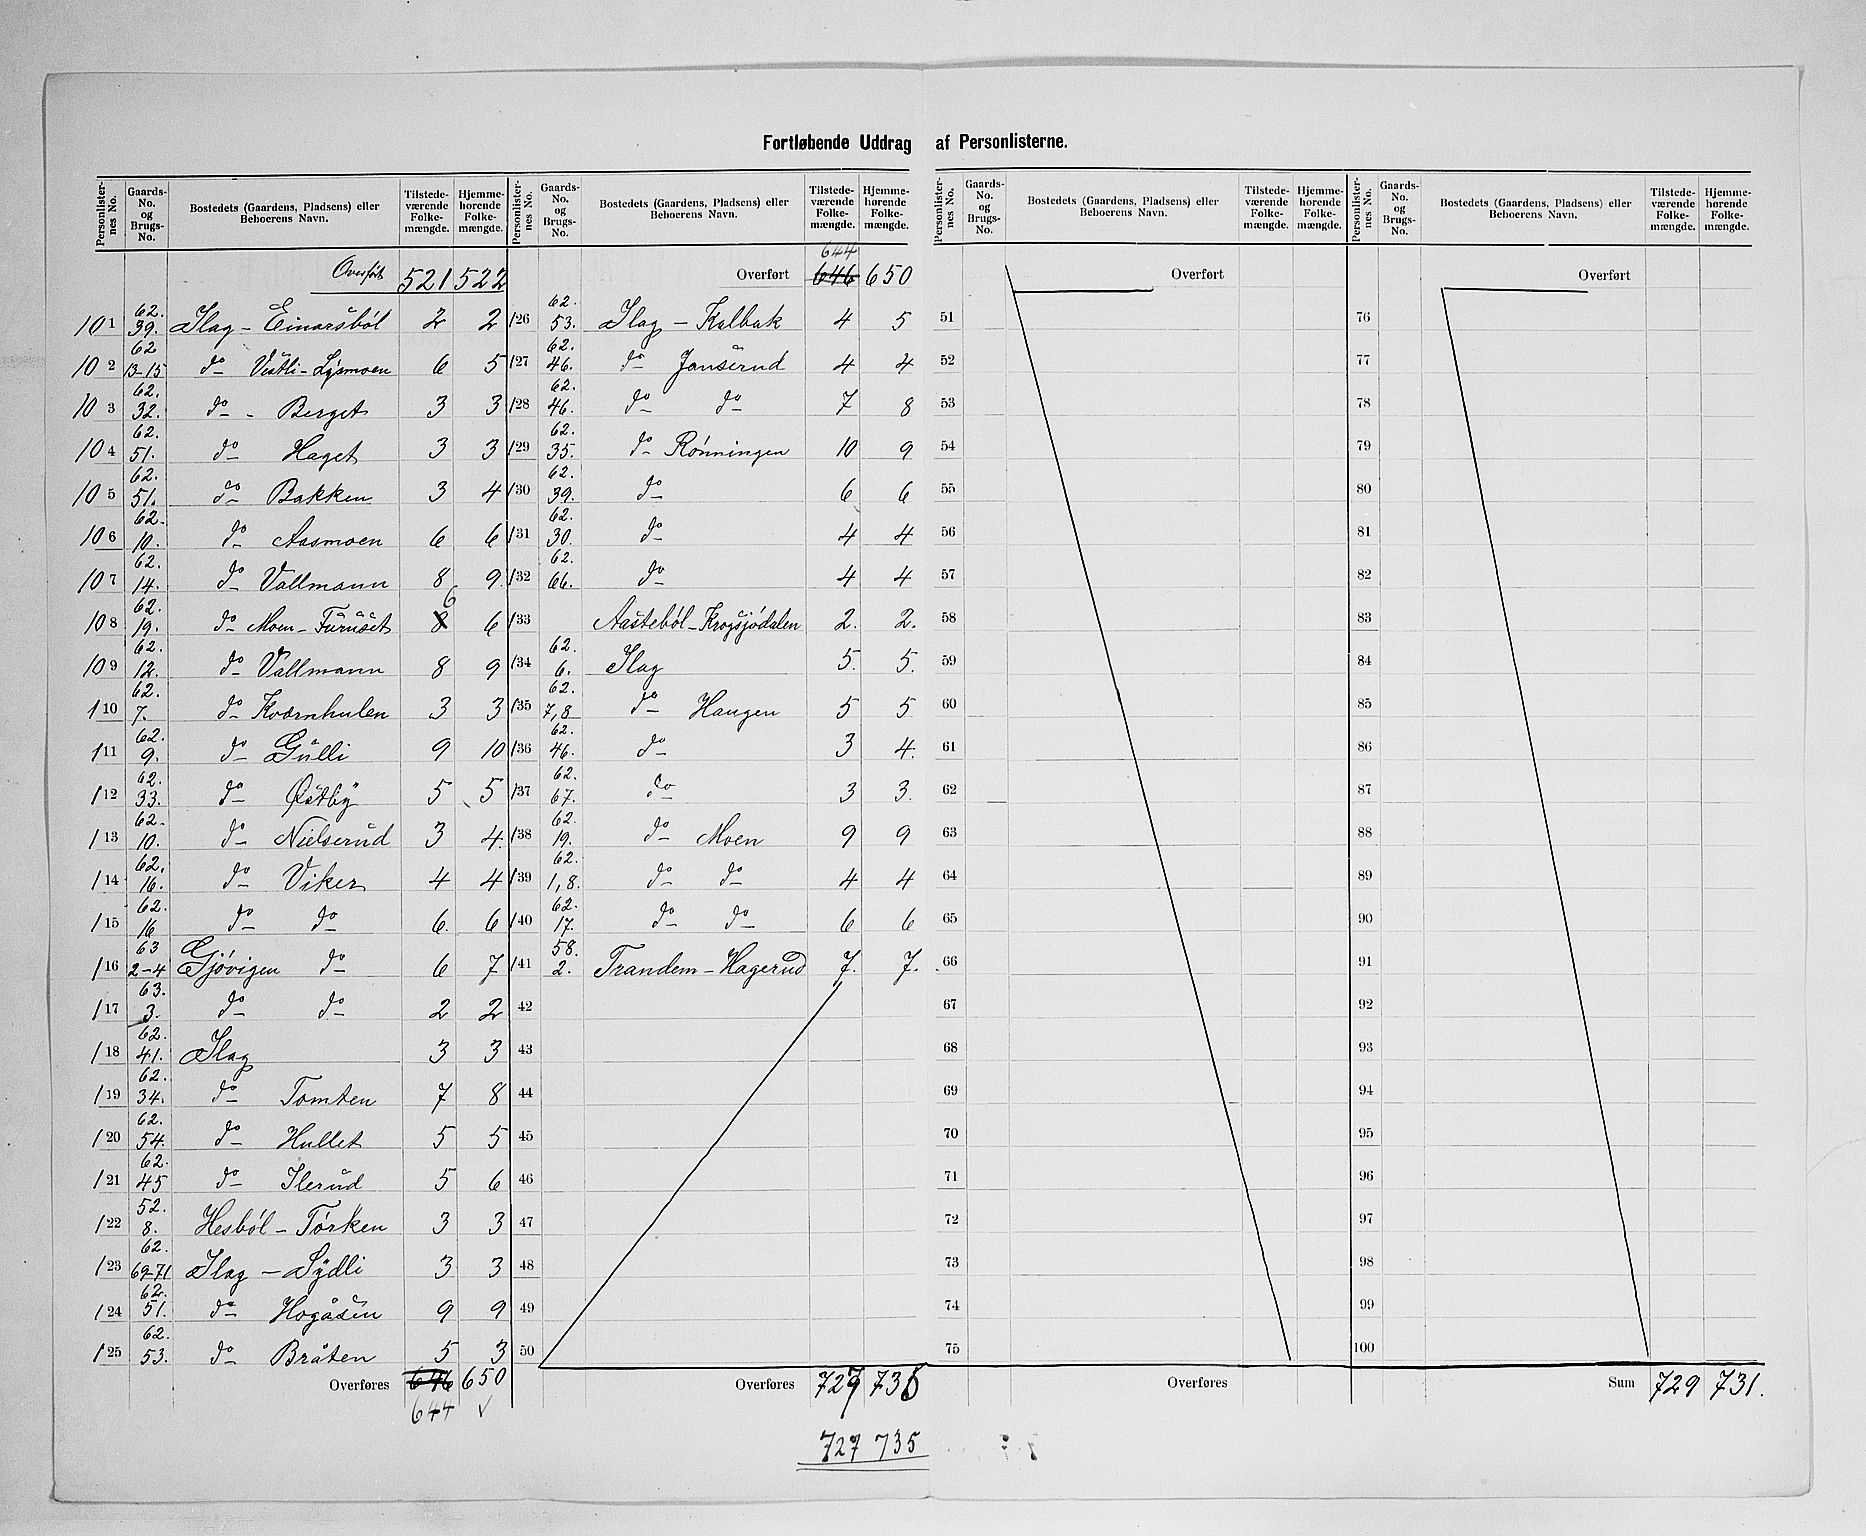 Fortløbende Uddrag af Personlisterne.
Personlisternes No. Gaards-No. og Brugs-No. Bostedets (Gaardens, Pladsens) eller Beboerens Navn. Tilstedeværende Folkemængde. Hjemmehørende Folkemængde.
Overført 521 522
101 62. 39. Ilag - Einarsböl 2 2
102 62 13-15 do Vestli - Lysmoen 6 5
103 62. 32. do - Berget 3 3
104 62. 51. do Haget 3 3
105 62. 51. do Bakken 3 4
106 62. 10. do Aasmoen 6 6
107 62. 14. do Vallmann 8 9.
108 62. 19. do Moen - Furuset 8 6 6
109 62. 12. do Vallmann 8 9
110 62. 7. do Kværnhulen 3 3
111 62. 9. do Gulli 9 10
112 62. 33. do Østby 5 5
113 62. 10. do Nielserud 3 4.
114 62. 16. do Viker 4 4
115 62. 16 do do 6. 6
116 63 2-4 Gjövigen do 6 7
117 63. 3. do do 2 2
118 62. 41. Ilag 3 3
119 62. 34. do Tomten 7 8
120 62. 54. do Hullet 5 5
121 62. 45 do Ilerud 5 6
122 52. 8. Hesböl - Törken 3 3
123 62. 69-71 Ilag - Sydli 3 3
124 62. 51. do Hogåsen 9 9
125 62. 53. do Bråten 5 3
Overføres 646 650
644 √
Personlisternes No. Gaards-No. og Brugs-No. Bostedets (Gaardens, Pladsens) eller Beboerens Navn. Tilstedeværende Folkemængde. Hjemmehørende Folkemængde.
644
Overført 646 650
126 62. 53. Ilag - Kalbak 4 5
127 62. 46. do Janserud 4 4
128 62. 46. do do 7 8
129 62. 35. do Rönningen 10 9
130 62. 39. do 6 6
131 62. 30. do 4 4
132 62. 66. do 4 4
133 Aasteböl - Krogsjödalen 2. 2.
134 62. 6. Ilag 5. 5.
135 62. 7,8 do Haugen 5 5
136 62. 46. do 3 4.
137 62. 67. do 3 3.
138 62. 19. do Moen 9 9
139 62. 1,8. do do 4 4
140 62. 17. do do 6 6
141 58. 2. Trandem - Hagerud 7. 7.
42
43
44
45
46
47
48
49
50
Overføres 727 735
727 735
Personlisternes No. Gaards-No. og Brugs-No. Bostedets (Gaardens, Pladsens) eller Beboerens Navn. Tilstedeværende Folkemængde. Hjemmehørende Folkemængde.
Overført
51
52
53
54
55
56
57
58
59
60
61
62
63
64
65
66
67
68
69
70
71
72
73
74
75
Overføres
Personlisternes No. Gaards-No. og Brugs-No. Bostedets (Gaardens, Pladsens) eller Beboerens Navn. Tilstedeværende Folkemængde. Hjemmehørende Folkemængde.
Overført
76
77
78
79
80
81
82
83
84
85
86
87
88
89
90
91
92
93
94
95
96
97
98
99
100
Sum 729 731.